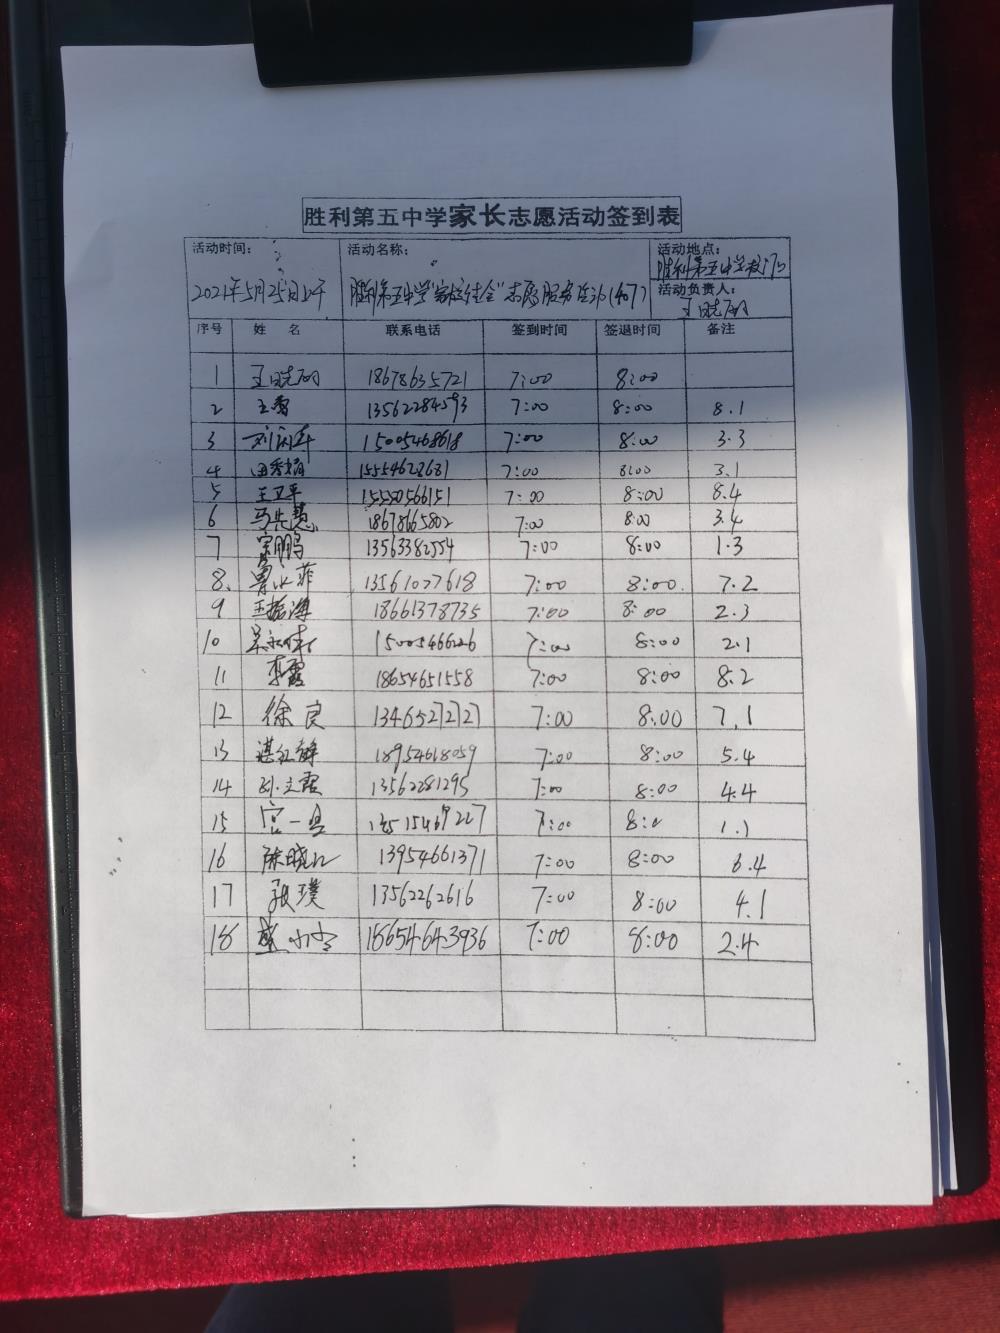 胜利第五中学家长志愿活动签到表
活动时间： 活动名称： 活动地点：
2021年5月25日上午 胜利第五中学"家校结合"志愿服务活动(407) 胜利第五中学校门口
活动负责人：
王晓丽
序号 姓 名 联系电话 签到时间 签退时间 备注
1 王晓丽 18678635721 7:00 8:00
2 王秀 13562284593 7:00 8:00 8.1
3 15005468618 7:00 8:00 3.3
4 田秀娟 15554628681 7:00 8:00 3.1
5 王卫平 15550566151 7:00 8:00 8.4
6 马先慧 18678665802 7:00 8:00 3.4
7 宋鹏 13563382554 7:00 8:00 1.3
8. 13561077618 7:00 8:00. 7.2
9 王振海 18661378735 7:00 8:00 2.3
10 15005466626 7:00 8:00 2.1
11 李霞 18654651558 7:00 8:00 8.2
12 徐良 13465272727 7:00 8:00 7.1
13 18954618059 7:00 8:00 5.4
14 孙文霞 13562281295 7:00 8:00 4.4
15 7:00
16 陈晓 13954661371 7:00 8:00 6.4
17 张璞 13562262616 7:00 8:00 4.1
18 18654643936 7:00 8:00 2.4